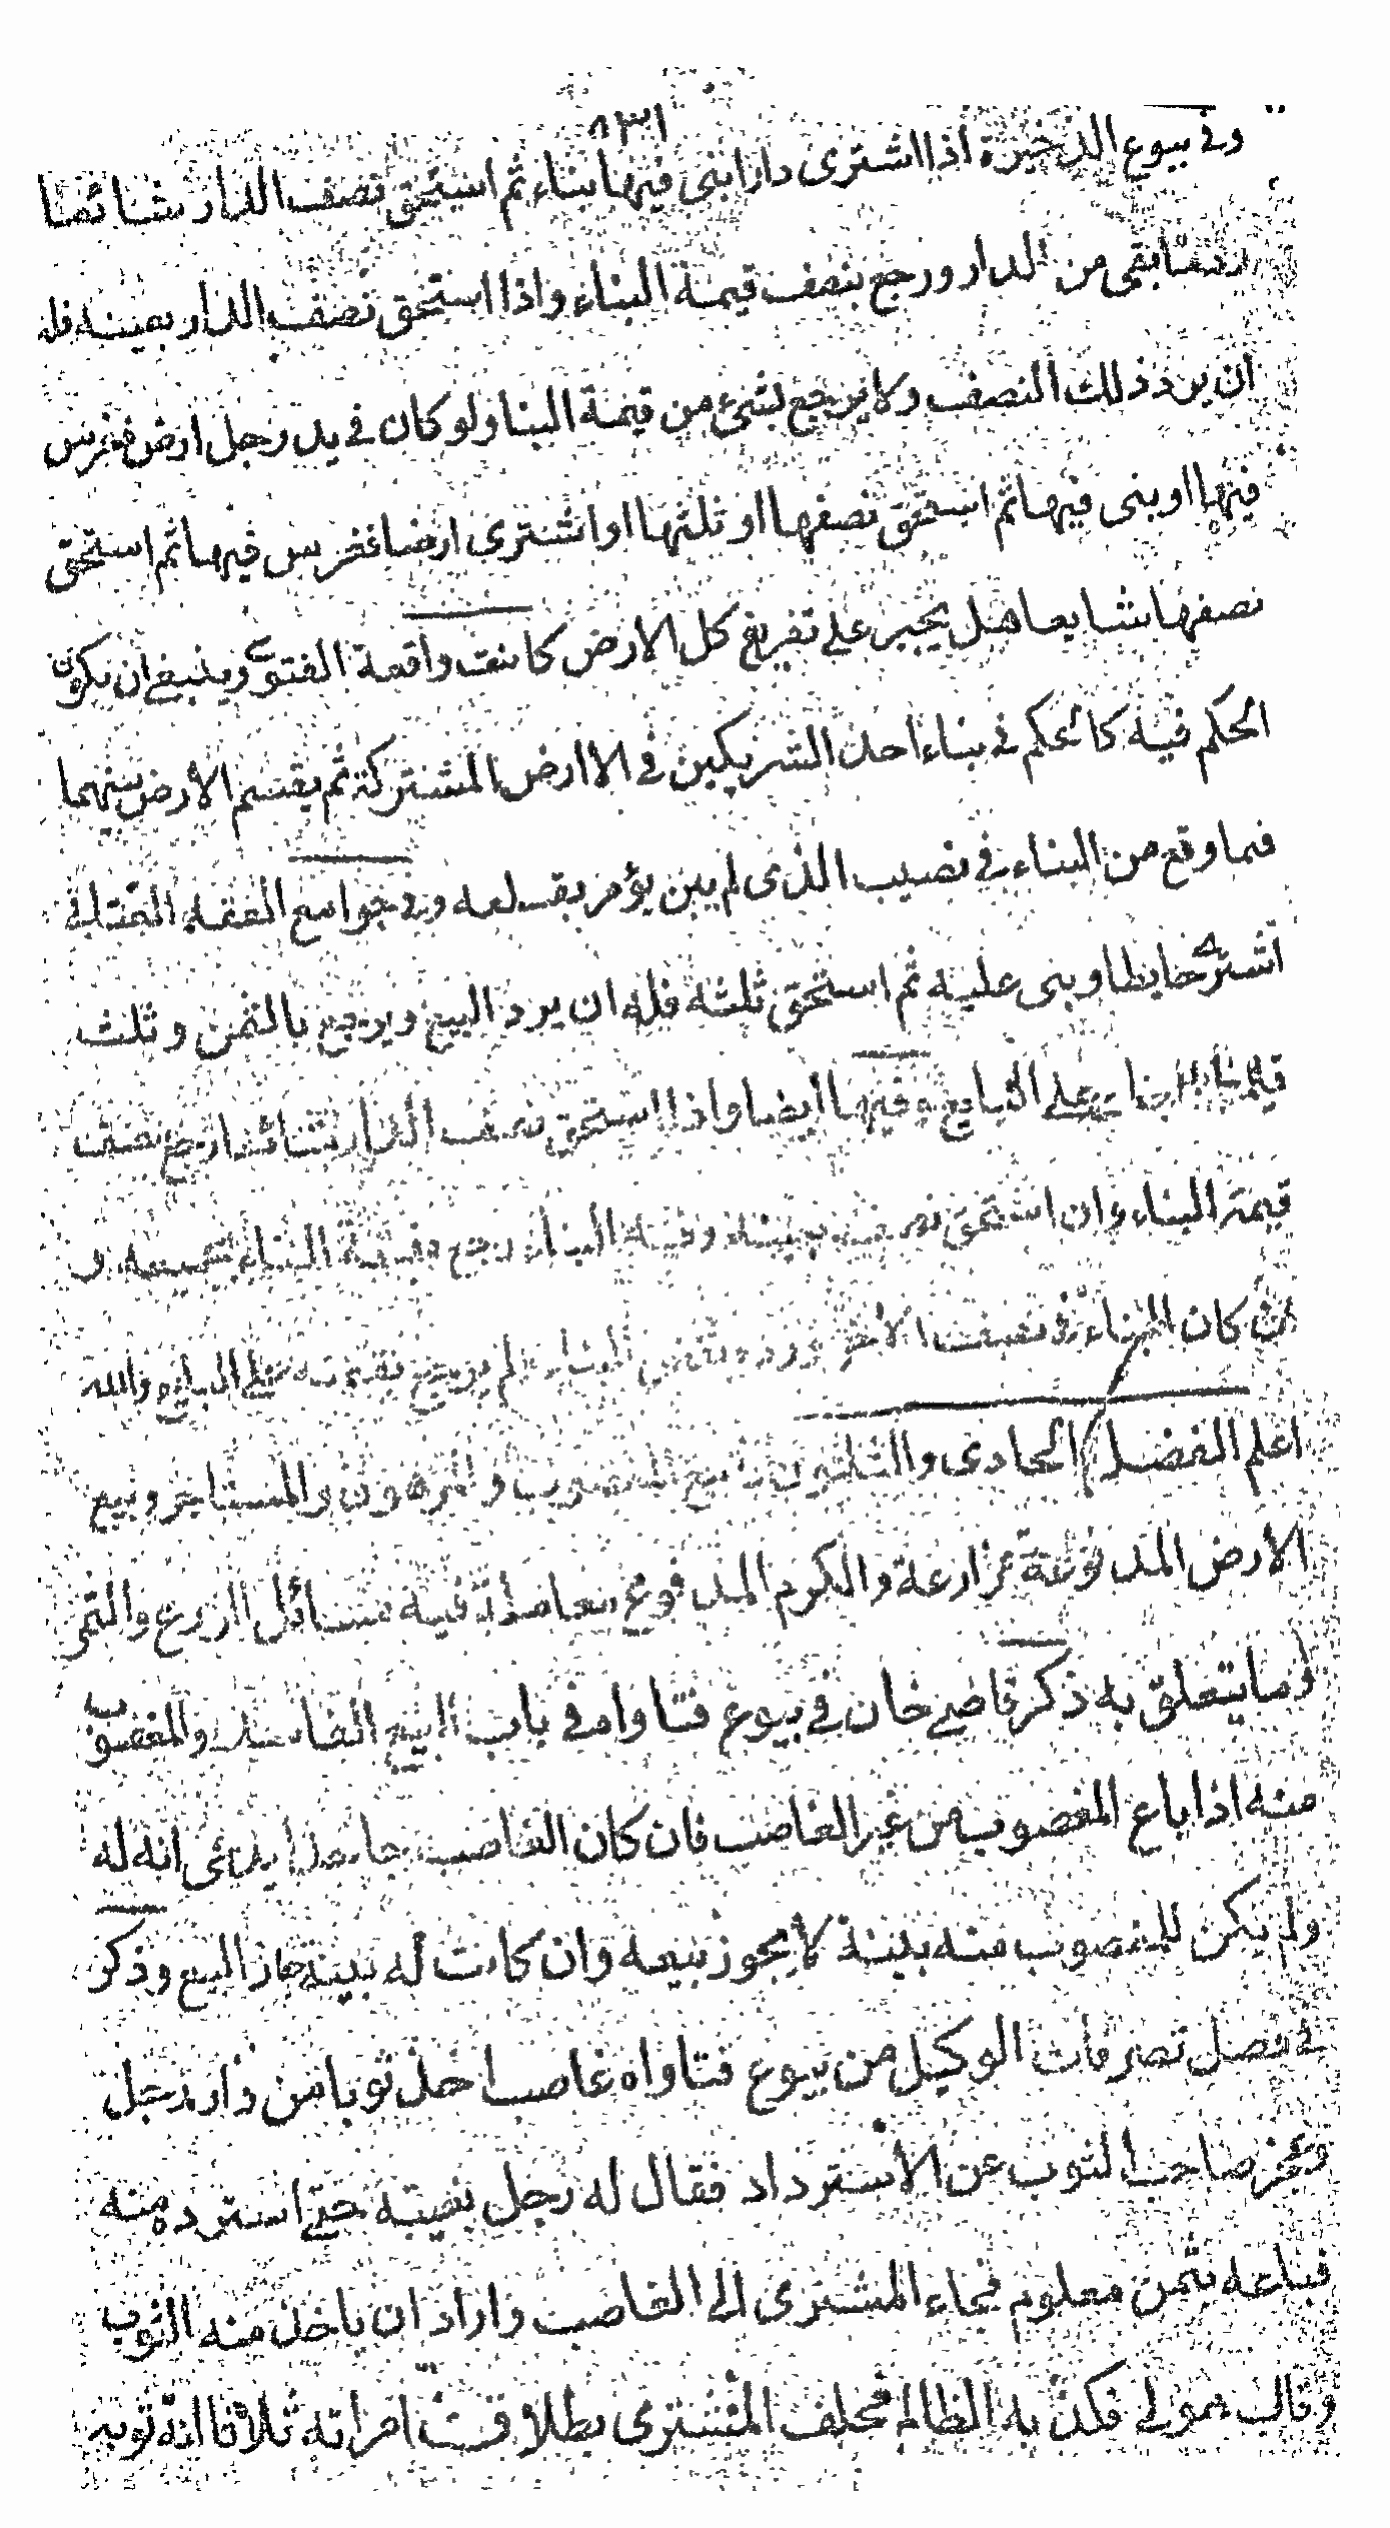 ٨٣١
وفى بيوع الذخيرة اذا اشترى دارا بنى فيها بناء ثم استحق نصف الدار شائعا
ما بقى من الدار ورجع بنصف قيمة البناء واذا استحق نصف الدار بعينه فله
ان يرد ذلك النصف ولا يرجع بشئ من قيمة البنا ولو كان فى يد رجل ارض فغرس
فيها او بنى فيها ثم استحق نصفها او ثلثها او اشترى ارضا فغرس فيها ثم استحق
نصفها شايعا هل يجبر على تفريغ كل الارض كانت واقعة الفتوى وينبغى ان يكون
الحكم فيه كالحكم فى بناء احد الشريكين فى الاارض المشتركة ثم يقسم الارض بينهما
فما وقع من البناء فى نصيب الذى لم يبن يؤمر بقلعه وفى جوامع الفقه العتابى
اشترى حايطا وبنى عليه ثم استحق ثلثه فله ان يرد البيع ويرجع بالثمن وثلث
قيمة البناء على البايع وفيها ايضا واذا استحق نصف الدار شائعا رجع بنصف
قيمة البناء وان استحق نصفه بعينه وفيه البناء رجع بقيمة البناء جميعه و
ان كان البناء فى نصف الاخر ورده بنقض البناء لم يرجع بقيمته على البايع والله
اعلم الفصل الحادى والثلثون فى بيع المغصوب والمرهون والمستاجر وبيع
الارض المدفوعة مزارعة والكروم المدفوع معاملة فيه مسائل الزرع والثمر
وما يتعلق به ذكر قاضى خان فى بيوع فتاواه فى باب البيع الفاسد والمغصوب
منه اذا باع المغصوب من غير الغاصب فان كان الغاصب جاحدا يدعى انه له
ولم يكن للمغصوب منه بينة لا يجوز بيعه وان كانت له بينة جاز البيع وذكر
فى فصل تصرفات الوكيل من بيوع فتاواه غاصب احد ثوبا من دار رجل
وعجز صاحب الثوب عن الاسترداد فقال له رجل بعنيه حتى استرده منه
فباعه بثمن معلوم فجاء المشترى الى الغاصب واراد ان ياخذ منه الثوب
وقال هو لى فكذبه الظالم فحلف المشترى بطلاق امراته ثلاثا انه ثوبه